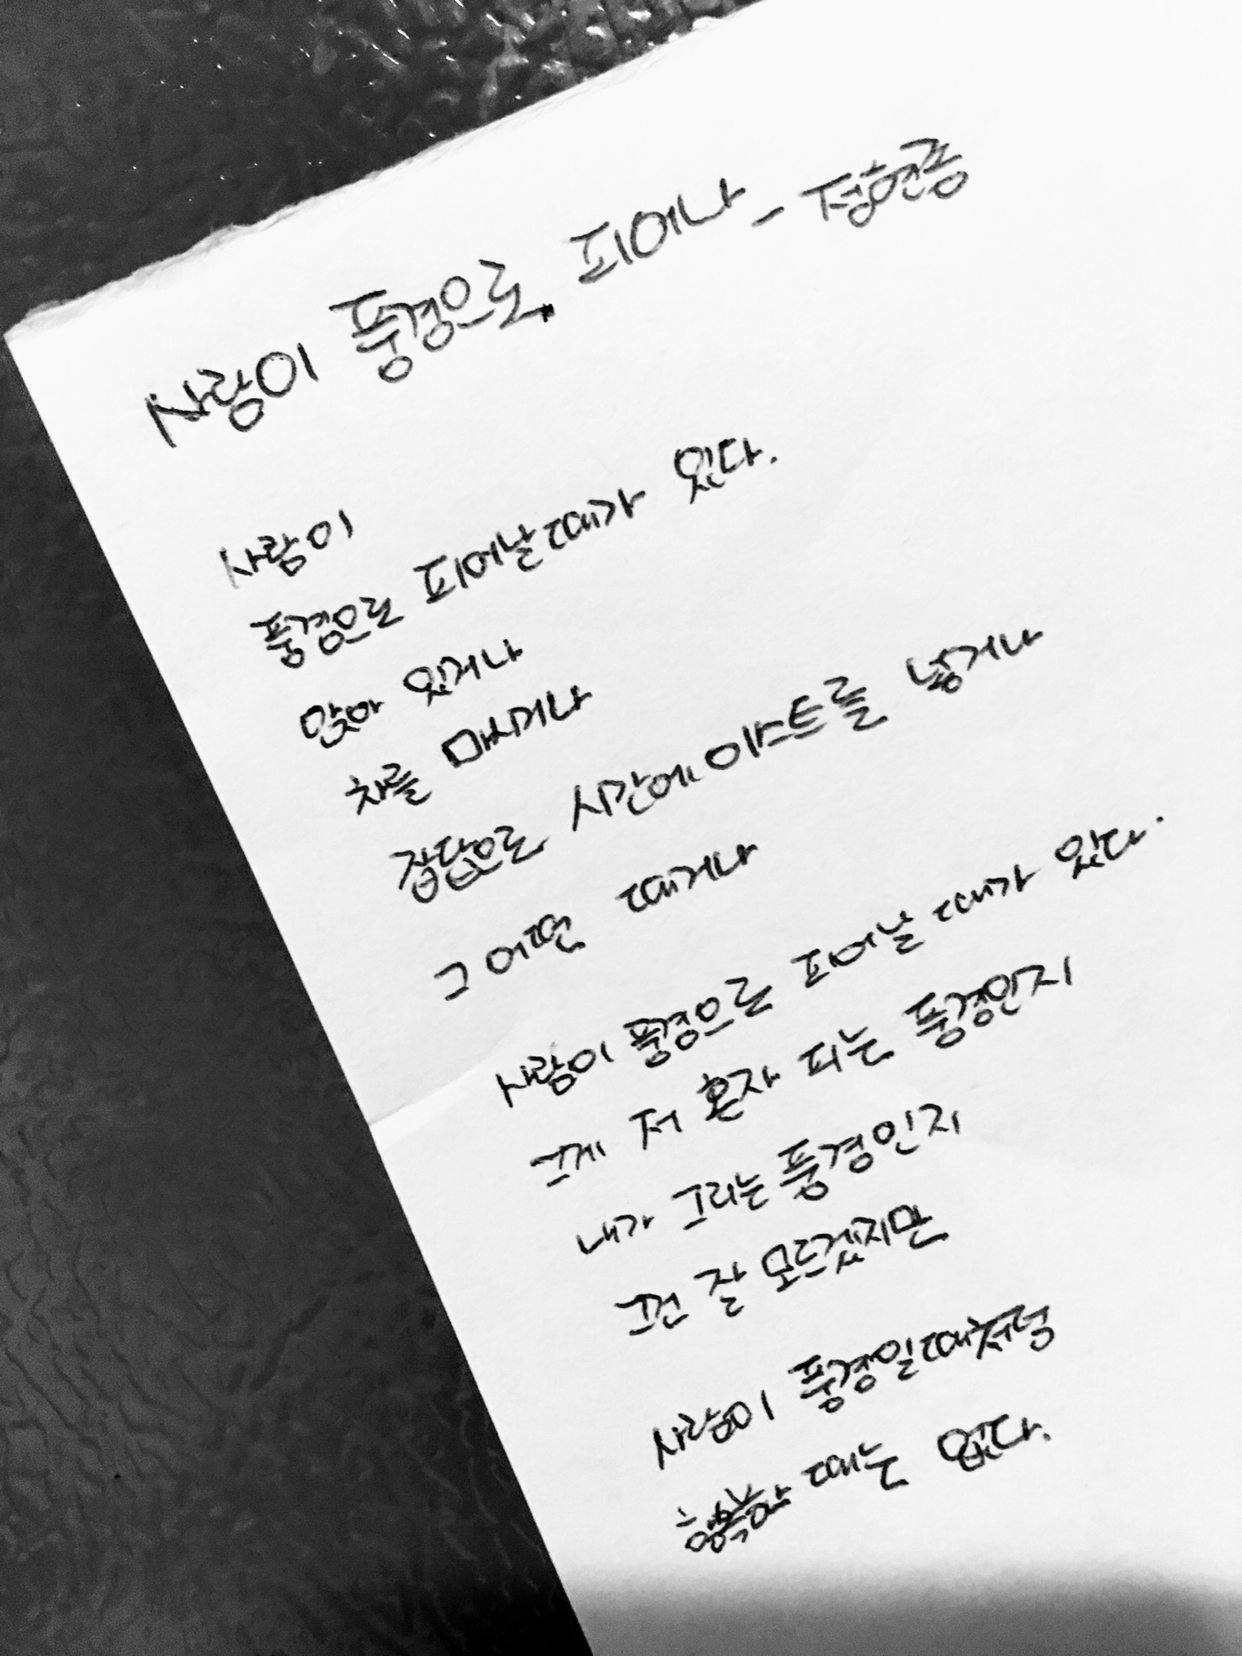 사람이 풍경으로 피어나 - 정현종
사람이
풍경으로 피어날 때가 있다.
앉아 있거나
차를 마시거나
잡담으로 시간에 이스트를 넣거나
그 어떤 때거나
사람이 풍경으로 피어날 때가 있다.
그게 저 혼자 피는 풍경인지
내가 그리는 풍경인지
그건 잘 모르겠지만
사람이 풍경일때처럼
행복한 때는 없다.